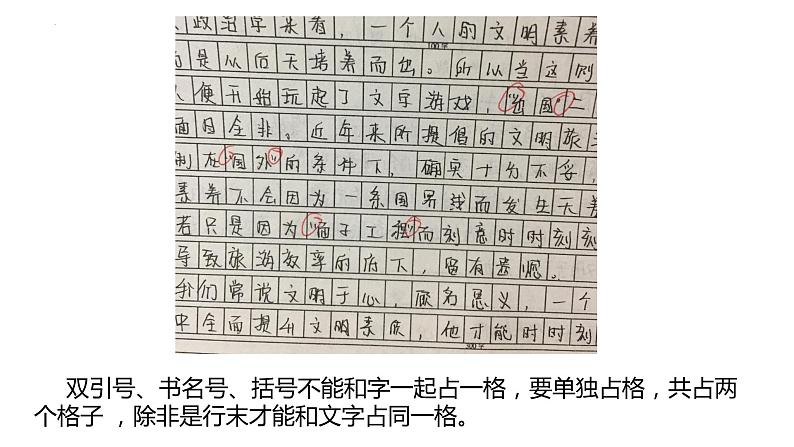 政治学来看，一个人的文明素养
而是从后天培养而出。所以当这则
便开始玩起了文字游戏，“出国”二
面目全非。近年来所提倡的文明旅
制在“国外”的条件下，确实十分不妥，
素养不会因为一条国界线而发生天差
若只是因为“面子工程”而刻意时时刻刻
导致旅游效率的低下，留有遗憾。
我们常说文明于心，顾名思义，一个
中全面提升文明素质，他才能时时刻
双引号、书名号、括号不能和字一起占一格，要单独占格，共占两
个格子 ，除非是行末才能和文字占同一格。